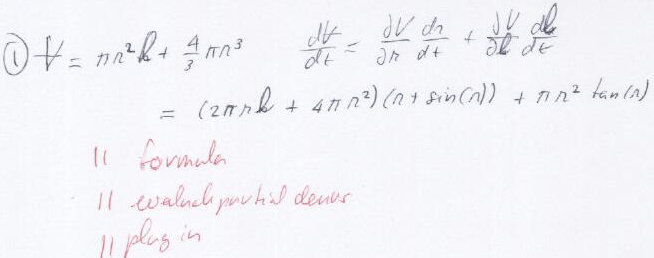 ① V = πr²h + 4/3 πr³ dV/dt = ∂V/∂r dr/dt + ∂V/∂h dh/dt
= (2πrh + 4πr²)(r + sin(r)) + πr² tan(r)
11 formula
11 partial
11 plug in